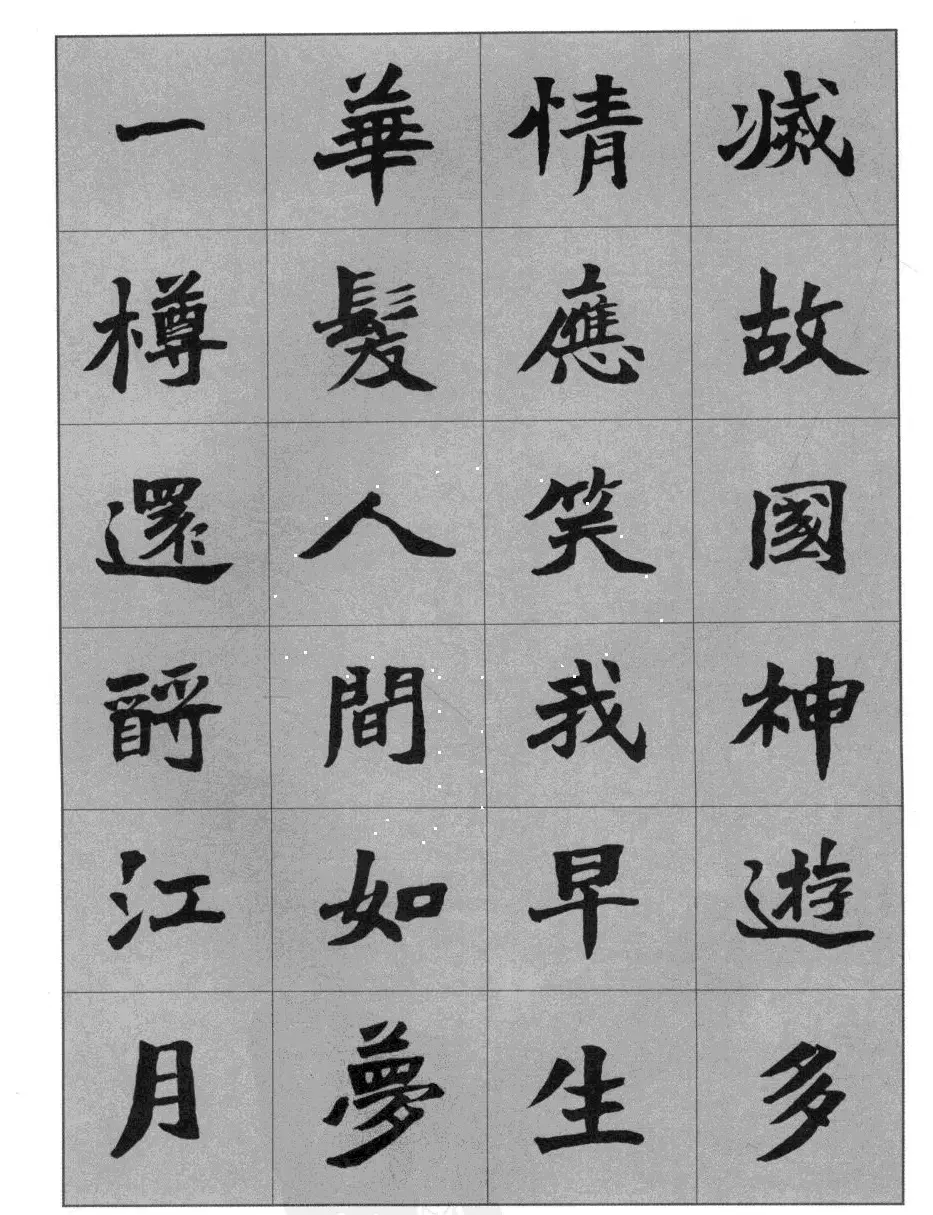 滅故國神遊多
情應笑我早生
華髮人間如夢
一樽還酹江月